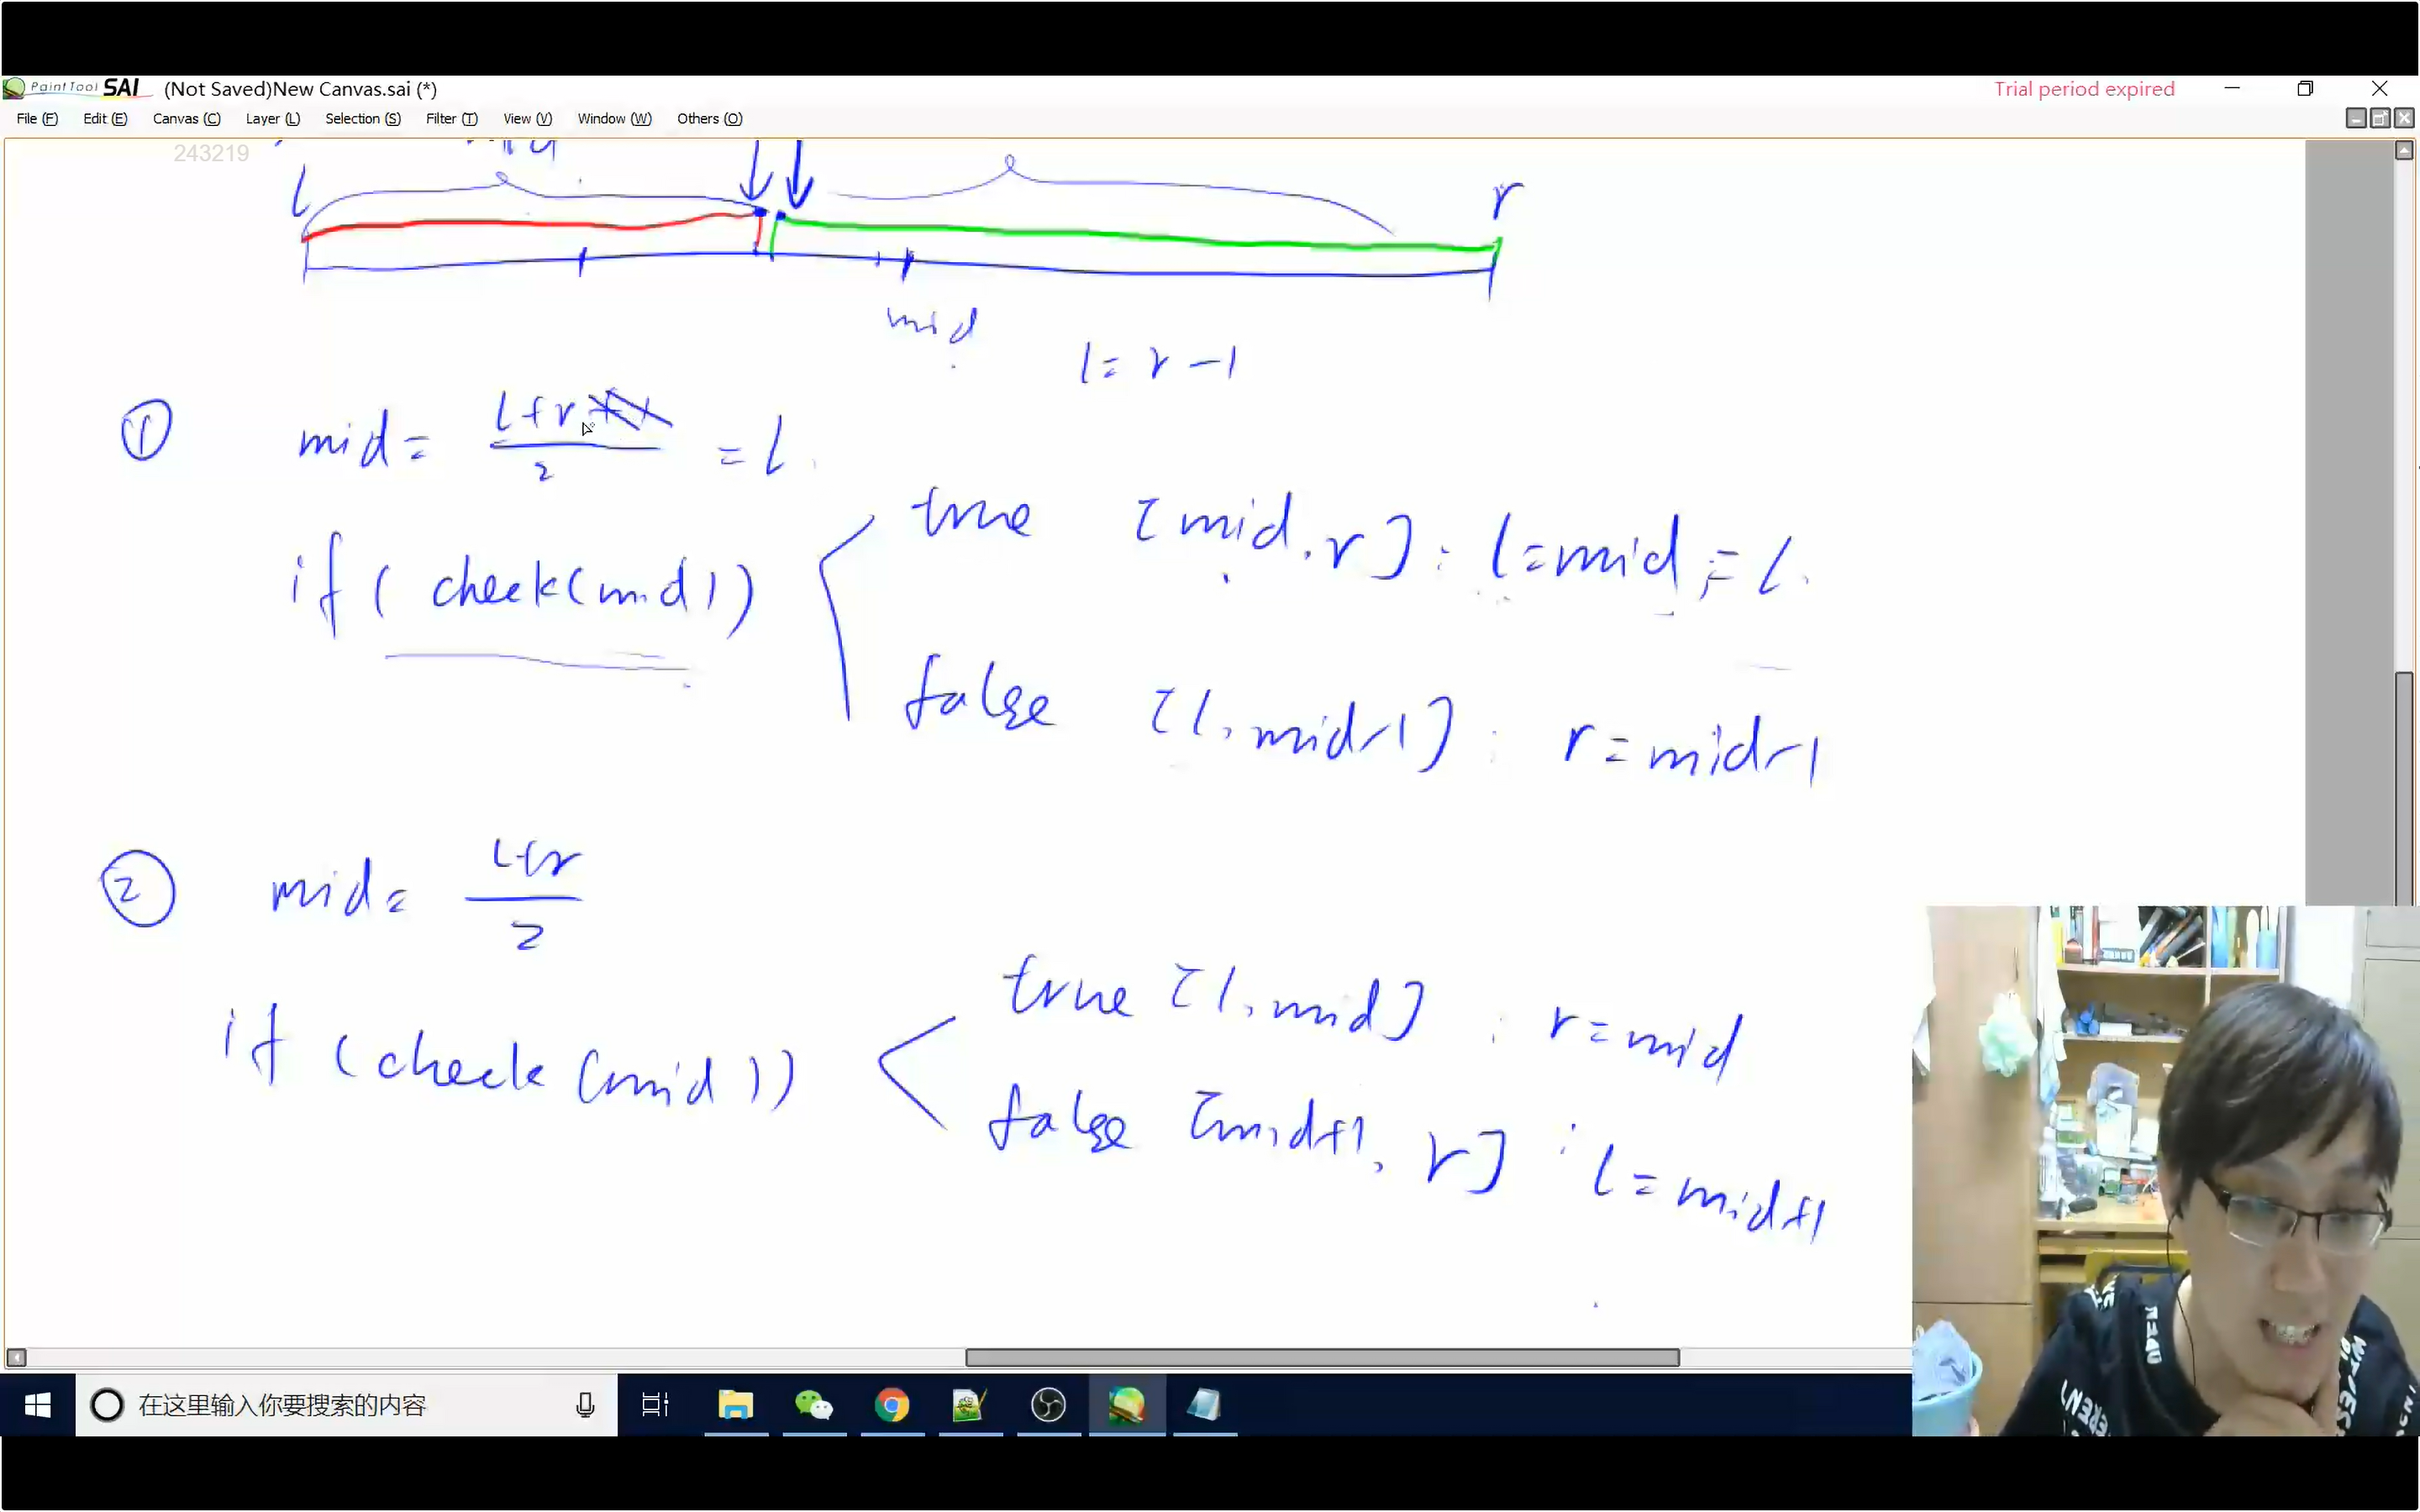 PaintTool SAI (Not Saved)New Canvas.sai (*) Trial period expired
File (F) Edit (E) Canvas (C) Layer (L) Selection (S) Filter (T) View (V) Window (W) Others (O)
243219
l r
mid
l = r - 1
① mid = l + r + 1 / 2 = l
if ( check(mid) )
true [mid, r] : l = mid = l
false [l, mid-1] : r = mid-1
② mid = l + r / 2
if (check (mid))
true [l, mid] : r = mid
false [mid+1, r] : l = mid+1
在这里输入你要搜索的内容